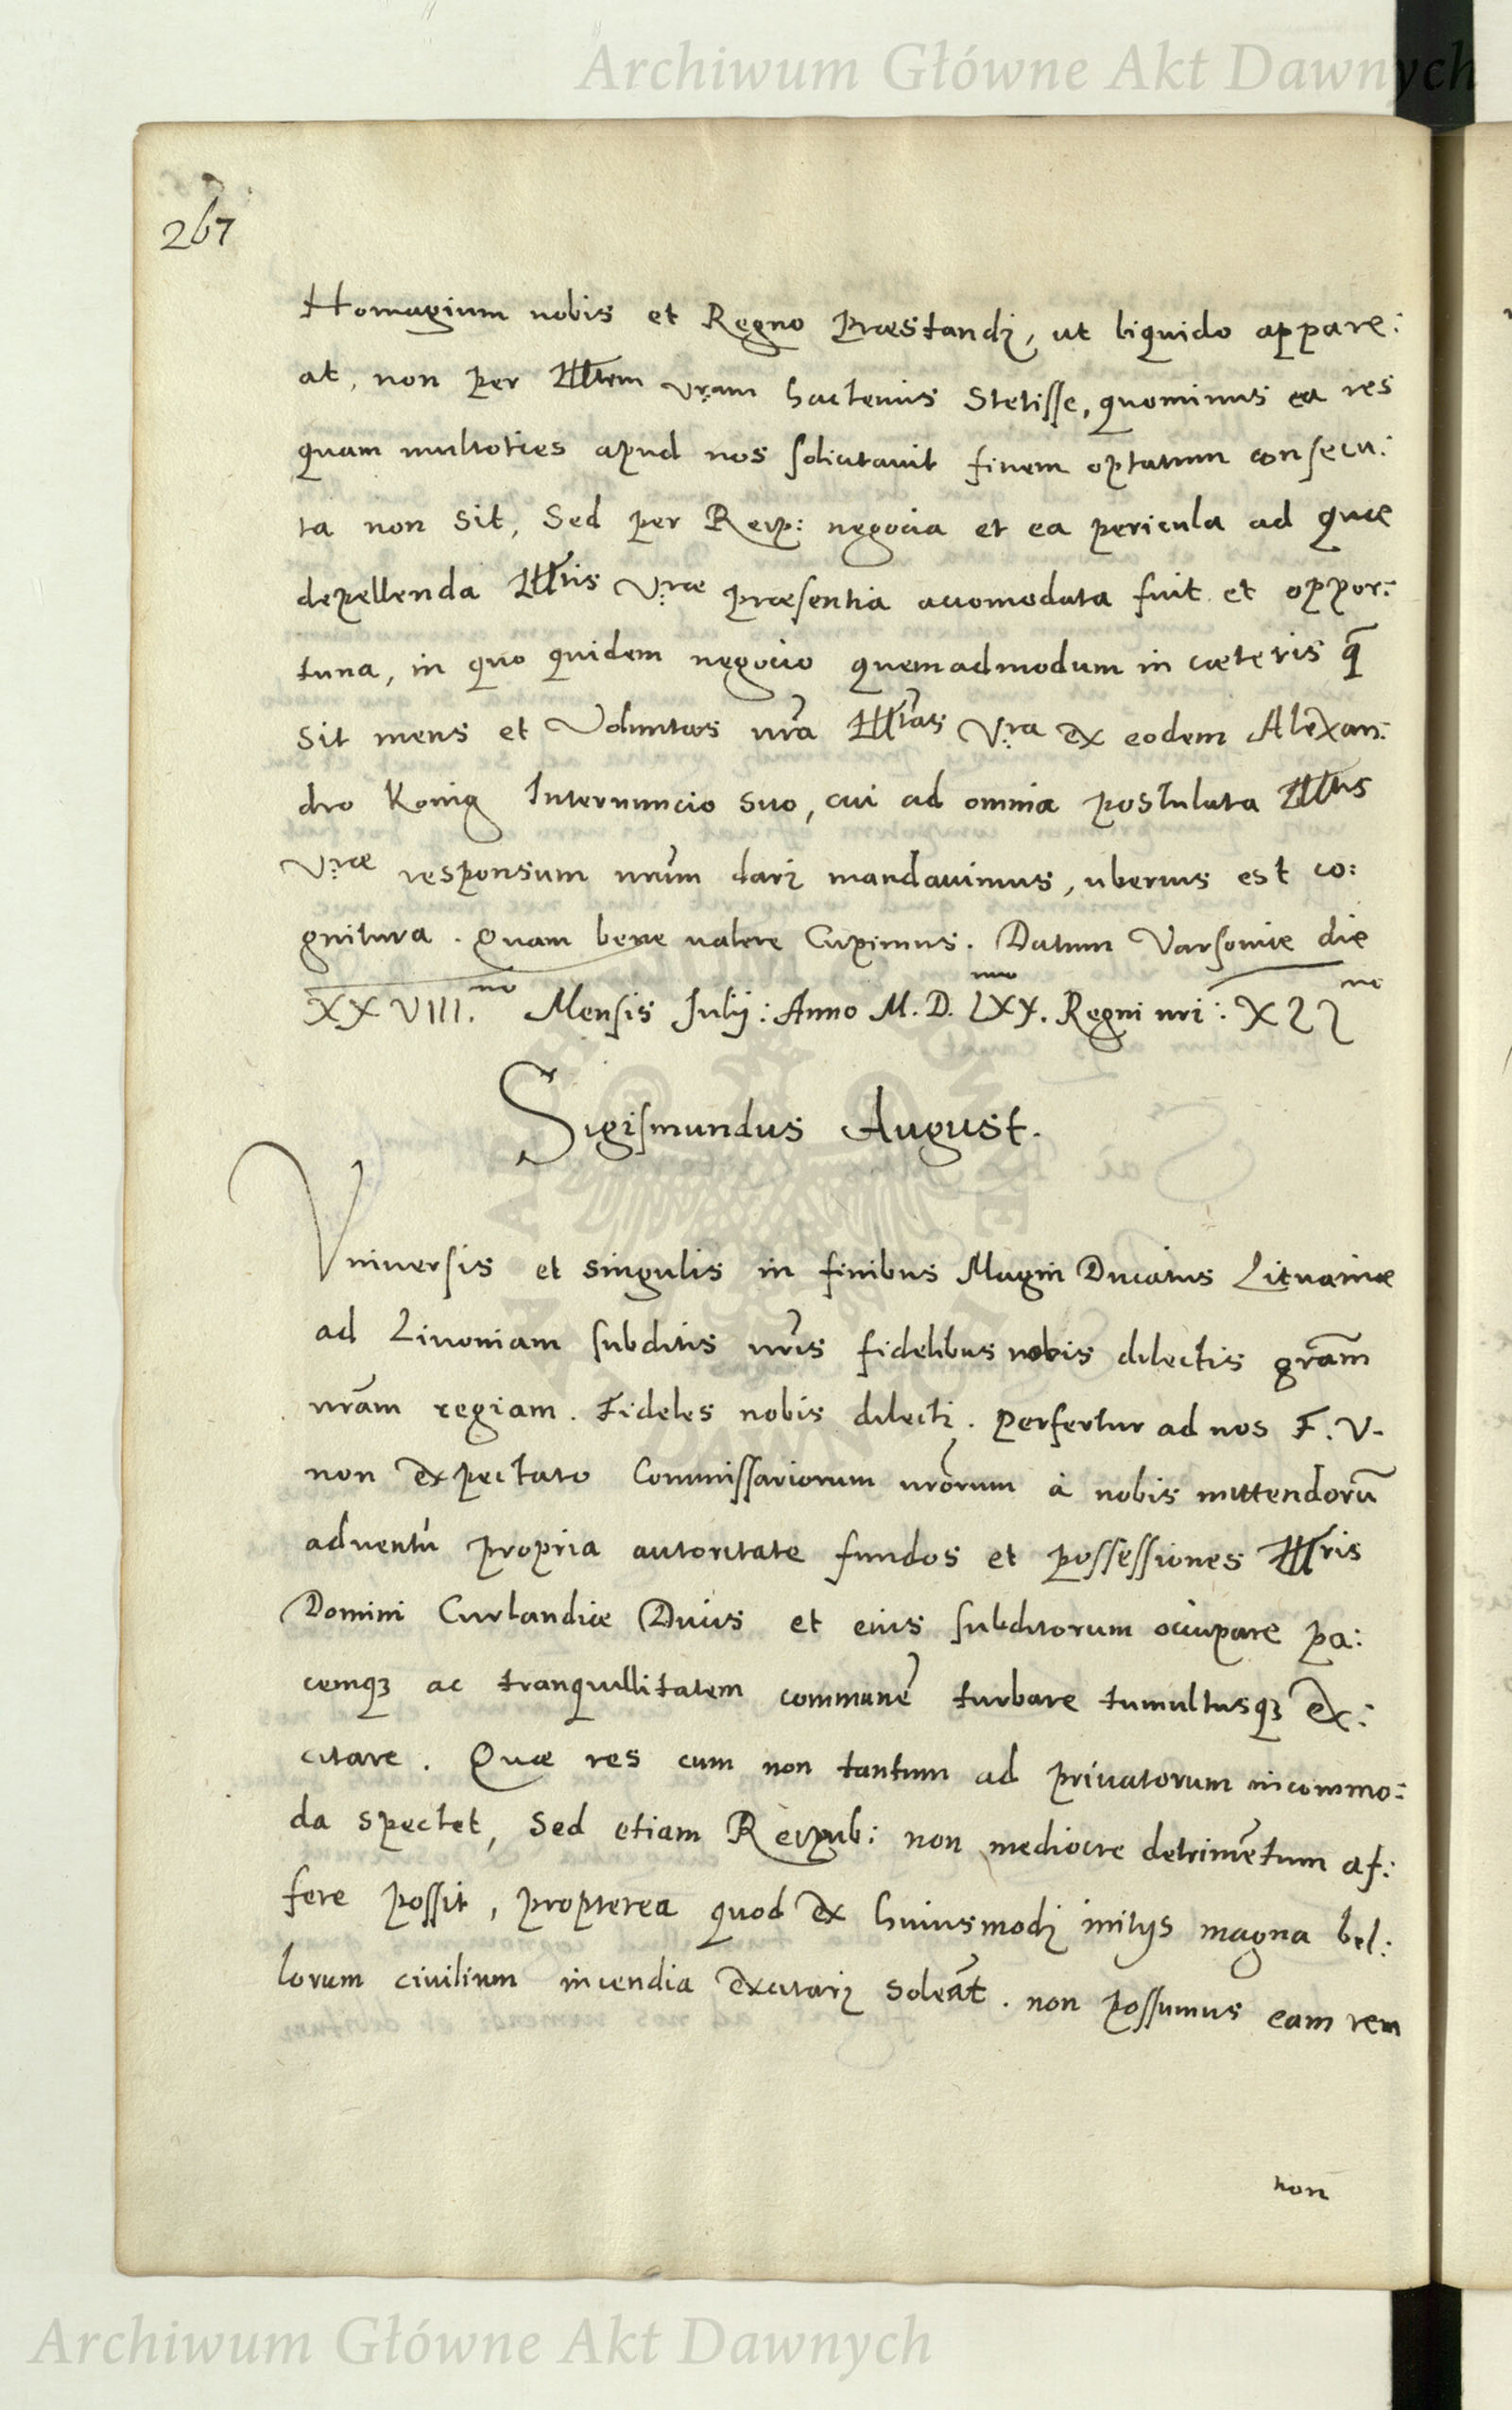 Archiwum Główne Akt Dawnych
267
Homagium nobis et Regno Præstandi, ut liquido appare:
at, non per Illtem vram hactenus stetisse, quominus ea res
quam multoties apud nos solicitavit finem optatum consecu:
ta non sit, sed per Reip: negocia et ea pericula ad quæ
depellenda Illtis Vræ præsentia accomodata fuit et oppor:
tuna, in quo quidem negocio quemadmodum in cæteris q̃
sit mens et Voluntas nr̃a Illtas Vra ex eodem Alexan:
dro Konig Internuncio suo, cui ad omnia postulata Illtis
Vræ responsum nrũm dari mandavimus, uberius est co:
gnitura. Quam bene valere Cupimus. Datum Varsoviæ die
XXVIII.mo Mensis Julij: Anno M.D.LXX.mo Regni nri: XLI mo
Sigismundus August.
Vniversis et singulis in finibus Magni Ducatus Lituaniæ
ad Livoniam subditis nrĩs fidelibus nobis dilectis grãm
nrãm regiam. Fideles nobis dilecti. Perfertur ad nos F. V.
non expectato Commissariorum nrõrum à nobis mittendorũ
adventu propria autoritate fundos et possessiones Illris
Domini Curlandiæ Ducis et eius subditorum occupare pa:
cemq3 ac tranquillitatem communẽ turbare tumultusq3 ex:
citare. Quæ res cum non tantum ad privatorum incommo:
da spectet, sed etiam Reipub: non mediocre detrimẽtum af:
fere possit, propterea quod ex huiusmodi initijs magna bel:
lorum civilium incendia excitari soleãt. non possumus eam rem
non
Archiwum Główne Akt Dawnych